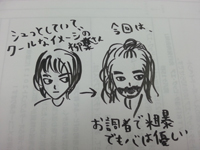 シュっとしていて、
クールなイメージの
柳葉さん
今回は、
お調者で粗暴
でも心は優しい